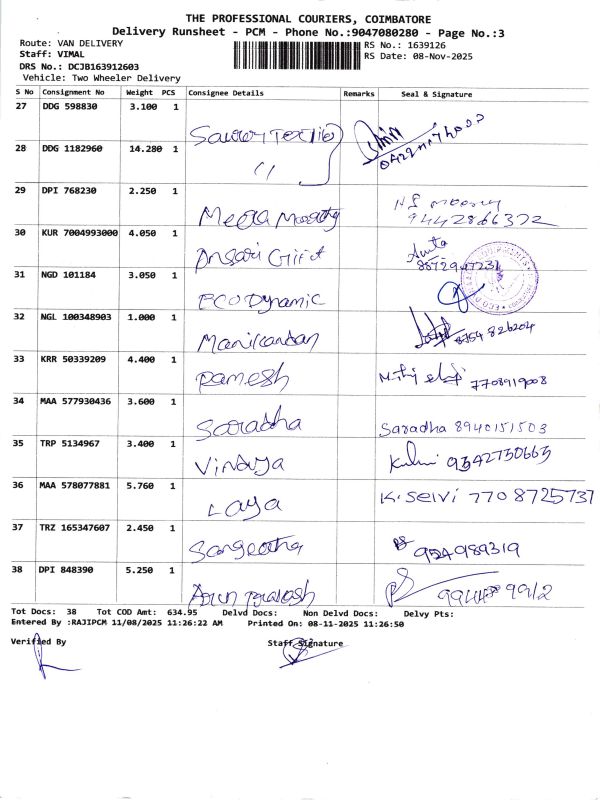 THE PROFESSIONAL COURIERS, COIMBATORE
Delivery Runsheet - PCM - Phone No.:9047080280 - Page No.:3
Route: VAN DELIVERY RS No.: 1639126
Staff: VIMAL RS Date: 08-Nov-2025
DRS No.: DCJB163912603
Vehicle: Two Wheeler Delivery
S No Consignment No Weight PCS Consignee Details Remarks Seal & Signature
27 DDG 598830 3.100 1
28 DDG 1182960 14.280 1 "
29 DPI 768230 2.250 1 Meera 9442866372
30 KUR 7004993000 4.050 1 Ansari Gift
31 NGD 101184 3.050 1 ECO Dynamic
32 NGL 100348903 1.000 1 Manikandan 8754826204
33 KRR 50339209 4.400 1 Ramesh 7708919008
34 MAA 577930436 3.600 1 Saradha Saradha 8940151503
35 TRP 5134967 3.400 1 Vindya 9342730663
36 MAA 578077881 5.760 1 Laya K. Selvi 7708725737
37 TRZ 165347607 2.450 1 Sangeetha 954989319
38 DPI 848390 5.250 1 Arun Prakash
Tot Docs: 38 Tot COD Amt: 634.95 Delvd Docs: Non Delvd Docs: Delvy Pts:
Entered By :RAJIPCM 11/08/2025 11:26:22 AM Printed On: 08-11-2025 11:26:50
Verified By Staff Signature